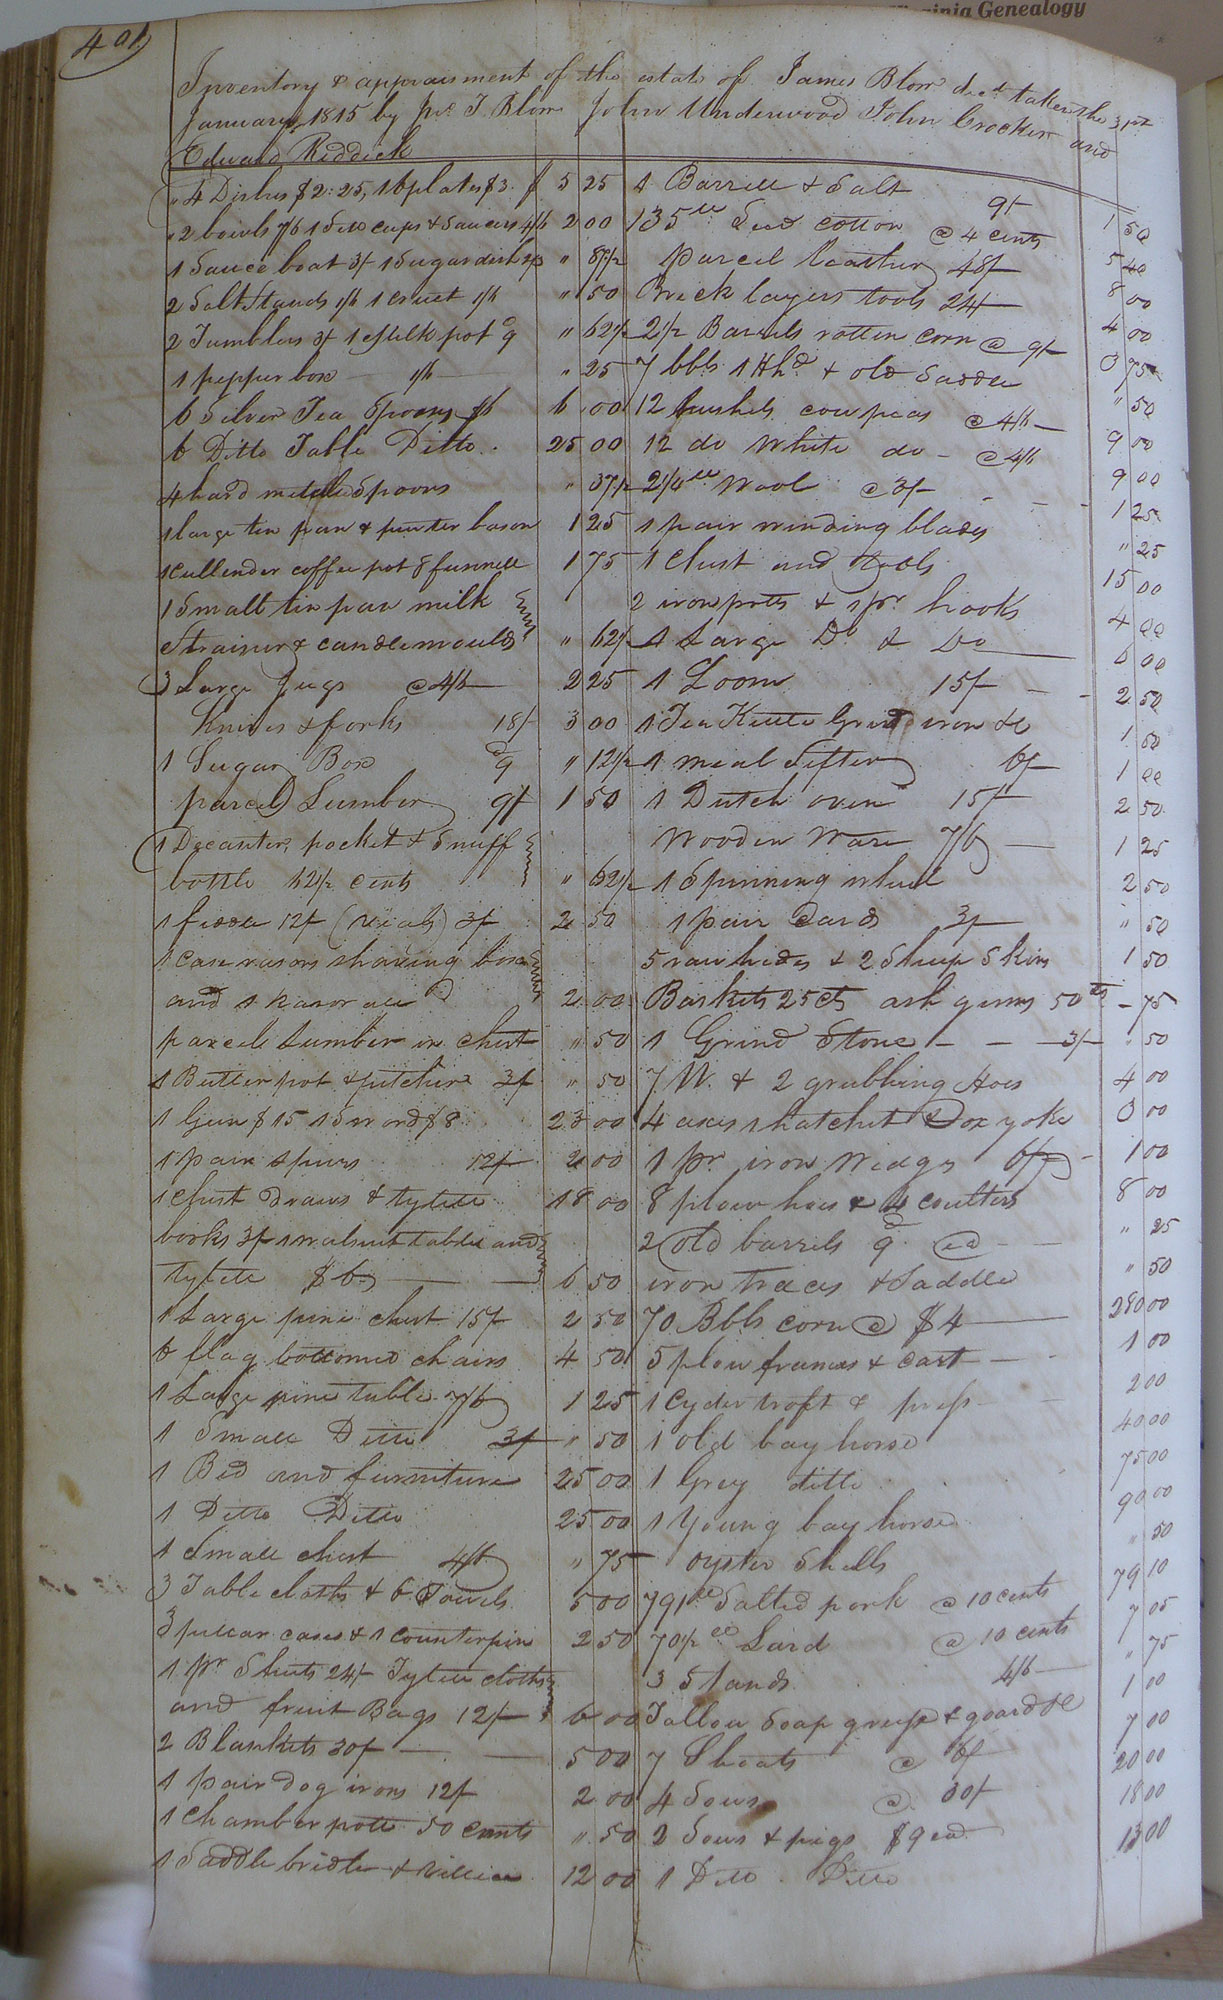 Virginia Genealogy
401
Inventory & appraisment of the estate of James Blow decd. taken the 31st
January 1815 by J. Blow John Underwood John Crocker and
Edward Riddick
4 Dishes $2.25, 16 plates $3. $ 5 25
2 bowls 7/6 1 Sett cups & Saucers 4/6 2 00
1 Sauce boat 3/ 1 Sugar dish " 87 1/2
2 Salt Stands 1/6 1 Cruet 1/6 " 50
2 Tumblers 3/ 1 Milk pot 9d " 62 1/2
1 pepper box 1/6 " 25
6 Silver Tea Spoons 6 00
6 Ditto Table Ditto. 25 00
4 hard mettle Spoons " 37 1/2
1 large tin pan & pewter bason 1 25
1 Cullender coffee pot & funnell 1 75
1 Small tin pan milk
Strainer & candle moulds " 62 1/2
3 Large Jugs @ 4/6 2 25
Knives & forks 18/ 3 00
1 Sugar Box 9d " 12 1/2
parcel Lumber 9/ 1 50
1 Decanter, pocket & Snuff
bottle 62 1/2 cents " 62 1/2
1 fiddle 12/ (vials) 3/ 2 50
1 case rasors shaving box
and 1 Rasor all 2 00
parcele Lumber in chest " 50
1 Butter pot & pitcher 3/ " 50
1 Gun $15 1 Sword $8 23 00
1 pair Spurs 12/ 2 00
1 Chest Draws & tylett 18 00
books 3/ 1 walnut table and
tylette $6 6 50
1 Large pine chest 15/ 2 50
6 flag bottomed chairs 4 50
1 Large pine table 7/6 1 25
1 Small Ditto 3/ " 50
1 Bed and furniture 25 00
1 Ditto Ditto 25 00
1 Small chest 4/6 " 75
3 Table cloths & 6 Towels 5 00
3 pillar cases & 1 counterpin 2 50
1 pr Sheets 24/ Tylette cloths
and fruit Bags 12/ 6 00
2 Blankets 30/ 5 00
1 pair dog irons 12/ 2 00
1 Chamber pott 50 cents " 50
1 Saddle bridle & 12 00
1 Barrell & Salt 9/ 1 50
135 lb Seed cotton @ 4 cents 5 40
parcel leather 48/ 8 00
Brick layers tools 24/ 4 00
2 1/2 Barrels rotten corn @ 9/ 3 75
7 bbls 1 Hhd & old Saddle " 50
12 bushels cowpeas @ 4/6 9 00
12 do White do @ 4/6 9 00
2 1/4 lb Wool @ 3/ 1 25
1 pair winding blades " 25
1 Chest and Tools 15 00
2 iron potts & 1 pr hooks 4 00
1 Large Do & Do 6 00
1 Loom 15/ 2 50
1 Tea Kettle Grid iron &c 1 50
1 meal Sifter 6/ 1 00
1 Dutch oven 15/ 2 50
Wooden Ware 7/6 1 25
1 Spinning wheel 2 50
1 pair Cards 3/ " 50
5 raw hides & 2 Sheep Skins 1 50
Baskets 25 cts ash gums 50 cts 75
1 Grind Stone 3/ " 50
7 W. & 2 grubbing Hoes 4 00
4 axes 1 hatchet & ox yoke 3 00
1 pr iron Wedges 6/ 1 00
8 plow hoes & 4 coulters 8 00
2 old barrels 9d ea " 25
iron traces & Saddle " 50
70 Bbls corn @ $4 280 00
5 plow frames & cart 1 00
1 Cyder troft & press 2 00
1 old bay horse 40 00
1 Grey ditto 75 00
1 Young bay horse 90 00
oyster Shells " 50
791 lb Salted pork @ 10 cents 79 10
70 1/2 lb Lard @ 10 cents 7 05
3 Stands 4/6 " 75
Tallow Soap greese & goard &c 1 00
7 Shoats @ 6/ 7 00
4 Sows @ 30/ 20 00
2 Sows & pigs $9 ea 18 00
1 Ditto Ditto 13 00